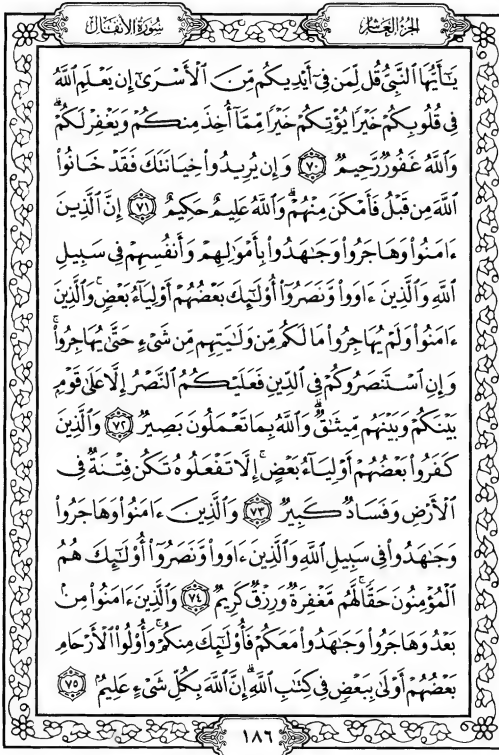 سورة الأنفال
الجزء العاشر
يَـٰٓأَيُّهَا ٱلنَّبِىُّ قُل لِّمَن فِىٓ أَيْدِيكُم مِّنَ ٱلْأَسْرَىٰٓ إِن يَعْلَمِ ٱللَّهُ
فِى قُلُوبِكُمْ خَيْرًا يُؤْتِكُمْ خَيْرًا مِّمَّآ أُخِذَ مِنكُمْ وَيَغْفِرْ لَكُمْ ۗ
وَٱللَّهُ غَفُورٌ رَّحِيمٌ ﴿٧٠﴾ وَإِن يُرِيدُوا۟ خِيَانَتَكَ فَقَدْ خَانُوا۟
ٱللَّهَ مِن قَبْلُ فَأَمْكَنَ مِنْهُمْ ۗ وَٱللَّهُ عَلِيمٌ حَكِيمٌ ﴿٧١﴾ إِنَّ ٱلَّذِينَ
ءَامَنُوا۟ وَهَاجَرُوا۟ وَجَـٰهَدُوا۟ بِأَمْوَٰلِهِمْ وَأَنفُسِهِمْ فِى سَبِيلِ
ٱللَّهِ وَٱلَّذِينَ ءَاوَوا۟ وَّنَصَرُوٓا۟ أُو۟لَـٰٓئِكَ بَعْضُهُمْ أَوْلِيَآءُ بَعْضٍ ۚ وَٱلَّذِينَ
ءَامَنُوا۟ وَلَمْ يُهَاجِرُوا۟ مَا لَكُم مِّن وَلَـٰيَتِهِم مِّن شَىْءٍ حَتَّىٰ يُهَاجِرُوا۟ ۚ
وَإِنِ ٱسْتَنصَرُوكُمْ فِى ٱلدِّينِ فَعَلَيْكُمُ ٱلنَّصْرُ إِلَّا عَلَىٰ قَوْمٍۭ
بَيْنَكُمْ وَبَيْنَهُم مِّيثَـٰقٌ ۗ وَٱللَّهُ بِمَا تَعْمَلُونَ بَصِيرٌ ﴿٧٢﴾ وَٱلَّذِينَ
كَفَرُوا۟ بَعْضُهُمْ أَوْلِيَآءُ بَعْضٍ ۚ إِلَّا تَفْعَلُوهُ تَكُن فِتْنَةٌ فِى
ٱلْأَرْضِ وَفَسَادٌ كَبِيرٌ ﴿٧٣﴾ وَٱلَّذِينَ ءَامَنُوا۟ وَهَاجَرُوا۟
وَجَـٰهَدُوا۟ فِى سَبِيلِ ٱللَّهِ وَٱلَّذِينَ ءَاوَوا۟ وَّنَصَرُوٓا۟ أُو۟لَـٰٓئِكَ هُمُ
ٱلْمُؤْمِنُونَ حَقًّا ۚ لَّهُم مَّغْفِرَةٌ وَرِزْقٌ كَرِيمٌ ﴿٧٤﴾ وَٱلَّذِينَ ءَامَنُوا۟ مِنۢ
بَعْدُ وَهَاجَرُوا۟ وَجَـٰهَدُوا۟ مَعَكُمْ فَأُو۟لَـٰٓئِكَ مِنكُمْ ۚ وَأُو۟لُوا۟ ٱلْأَرْحَامِ
بَعْضُهُمْ أَوْلَىٰ بِبَعْضٍ فِى كِتَـٰبِ ٱللَّهِ ۗ إِنَّ ٱللَّهَ بِكُلِّ شَىْءٍ عَلِيمٌۢ ﴿٧٥﴾
١٨٦